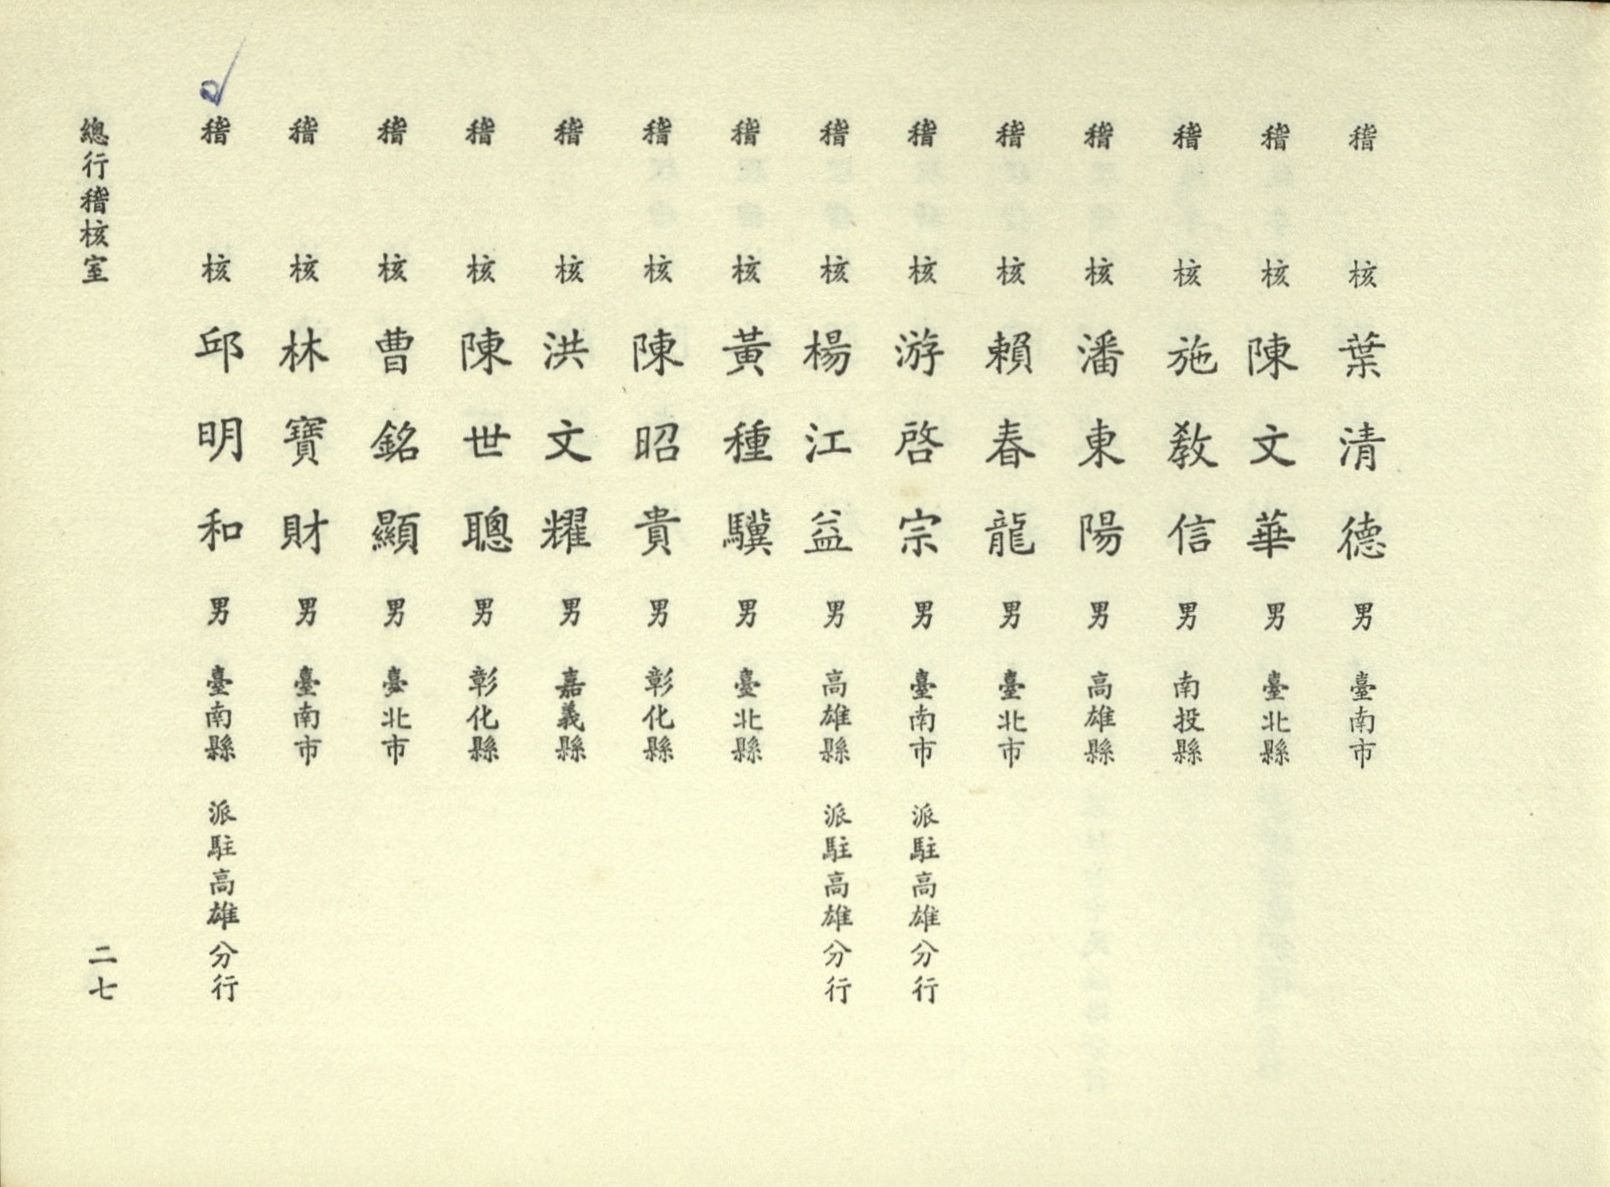 稽核葉清德男臺南市
稽核陳文華男臺北縣
稽核施教信男南投縣
稽核潘東陽男高雄縣
稽核賴春龍男臺北市
稽核游啓宗男臺南市派駐高雄分行
稽核楊江益男高雄縣派駐高雄分行
稽核黃種驥男臺北縣
稽核陳昭貴男彰化縣
稽核洪文耀男嘉義縣
稽核陳世聰男彰化縣
稽核曹銘顯男臺北市
稽核林寶財男臺南市
稽核邱明和男臺南縣派駐高雄分行
總行稽核室
二七